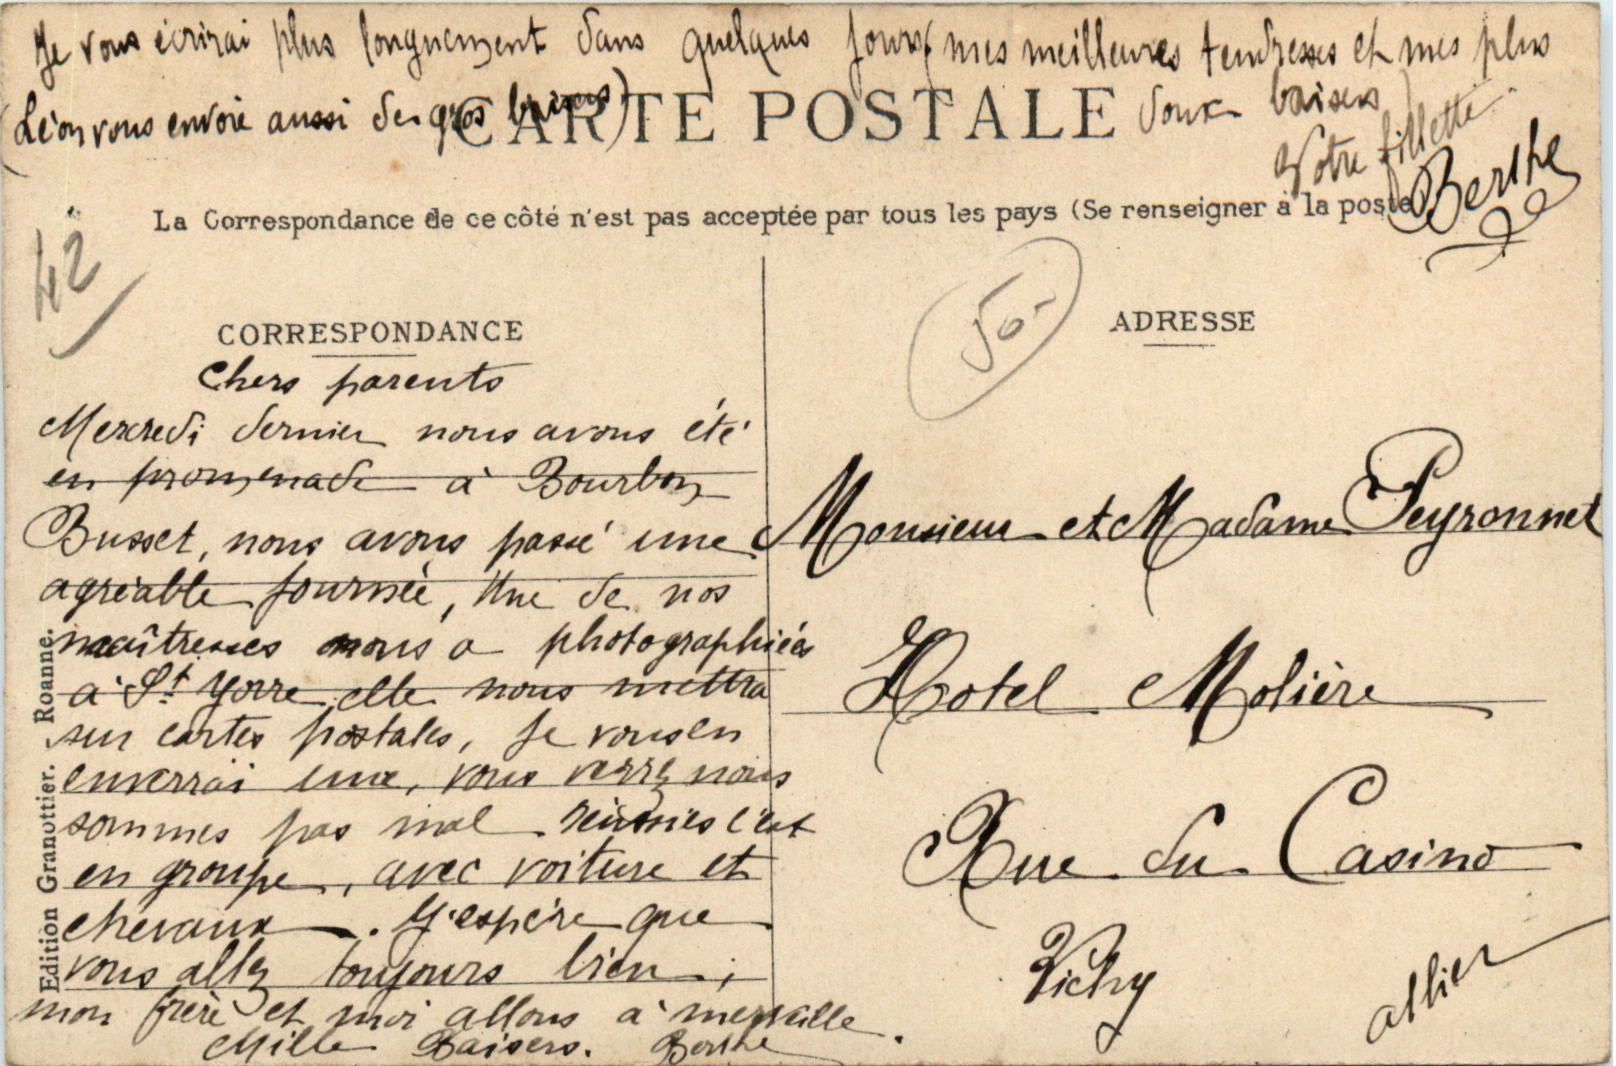 Je vous écrirai plus longuement dans quelques jours mes meilleures tendresses et mes plus
(Léon vous envoie aussi de gros baisers) doux baisers
CARTE POSTALE
Votre fillette
Berthe
La Correspondance de ce côté n'est pas acceptée par tous les pays (Se renseigner à la poste
42
50.-
CORRESPONDANCE
Chers parents
Mercredi dernier nous avons été
en promenade à Bourbon
Busset, nous avons passé une
agréable journée, Une de nos
maîtresses nous a photographiées
à St Yorre elle nous mettra
sur cartes postales, je vous en
enverrai une, vous verrez nous
sommes pas mal réussies c'est
en groupe, avec voiture et
chevaux. J'espère que
vous allez toujours bien;
mon frère et moi allons à merveille.
Mille Baisers. Berthe
Edition Granottier. Roanne.
ADRESSE
Monsieur et Madame Peyronnet
Hotel Molière
Rue du Casino
Vichy
Allier